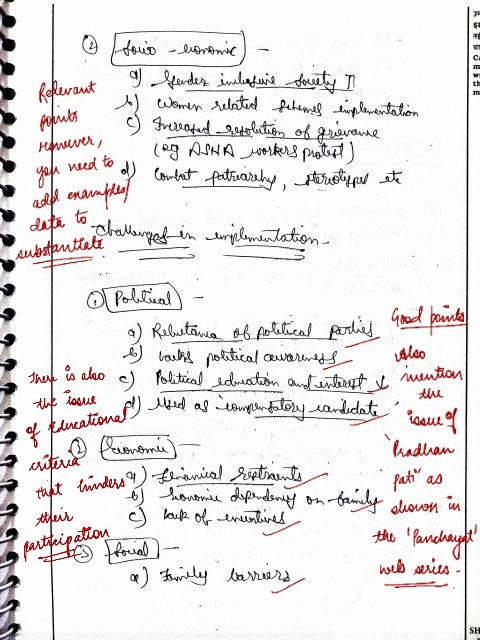 ② Socio-economic -
a) Gender inclusive society ↑
b) Women related schemes implementation
c) Increased resolution of grievance
(eg ASHA workers protest)
d) Combat patriarchy, stereotypes etc
Relevant
points
However,
you need to
add examples/
data to
substantiate.
Challenges in implementation -
① Political -
a) Reluctance of political parties
b) lacks political awareness
c) Political education and interest ↓
d) Used as 'compensatory candidate'
② Economic
a) Financial restraints
b) Economic dependency on family
c) Lack of incentives
③ Social -
a) Family barriers
There is also
the issue
of Educational
criteria
that hinders
their
participation
Good points
Also
mention
the
issue of
'Pradhan
pati" as
shown in
the 'Panchayat'
web series.
SH